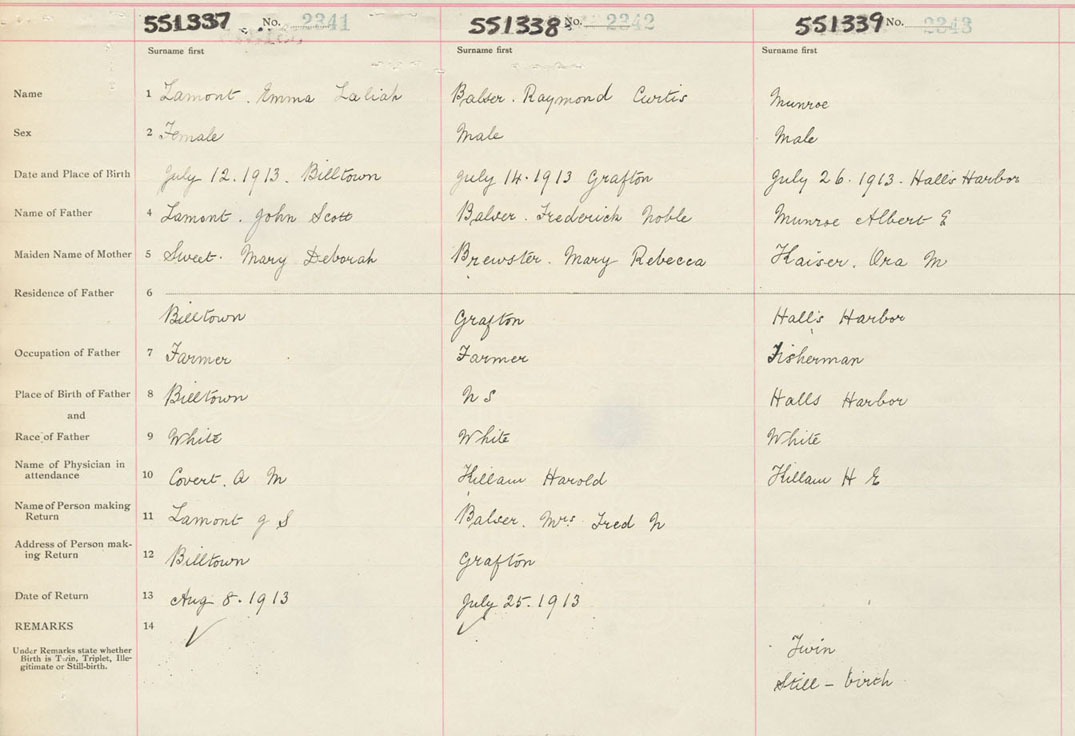 551337 No. 2341 551338 No. 2342 551339 No. 2343
Surname first Surname first Surname first
Name 1 Lamont. Emma Laliah Balser. Raymond Curtis Munroe
Sex 2 Female Male Male
Date and Place of Birth July 12. 1913. Billtown July 14. 1913 Grafton July 26. 1913. Hall's Harbor
Name of Father 4 Lamont. John Scott Balser. Frederick Noble Munroe Albert E
Maiden Name of Mother 5 Sweet. Mary Deborah Brewster. Mary Rebecca Kaiser. Ora M
Residence of Father 6
Billtown Grafton Hall's Harbor
Occupation of Father 7 Farmer Farmer Fisherman
Place of Birth of Father 8 Billtown N S Halls Harbor
and
Race of Father 9 White White White
Name of Physician in
attendance 10 Covert. A M Killam Harold Killam H E
Name of Person making
Return 11 Lamont J S Balser. Mrs Fred N
Address of Person mak-
ing Return 12 Billtown Grafton
Date of Return 13 Aug 8. 1913 July 25. 1913
REMARKS 14
Under Remarks state whether
Birth is Twin, Triplet, Ille-
gitimate or Still-birth.
Twin
Still - birth